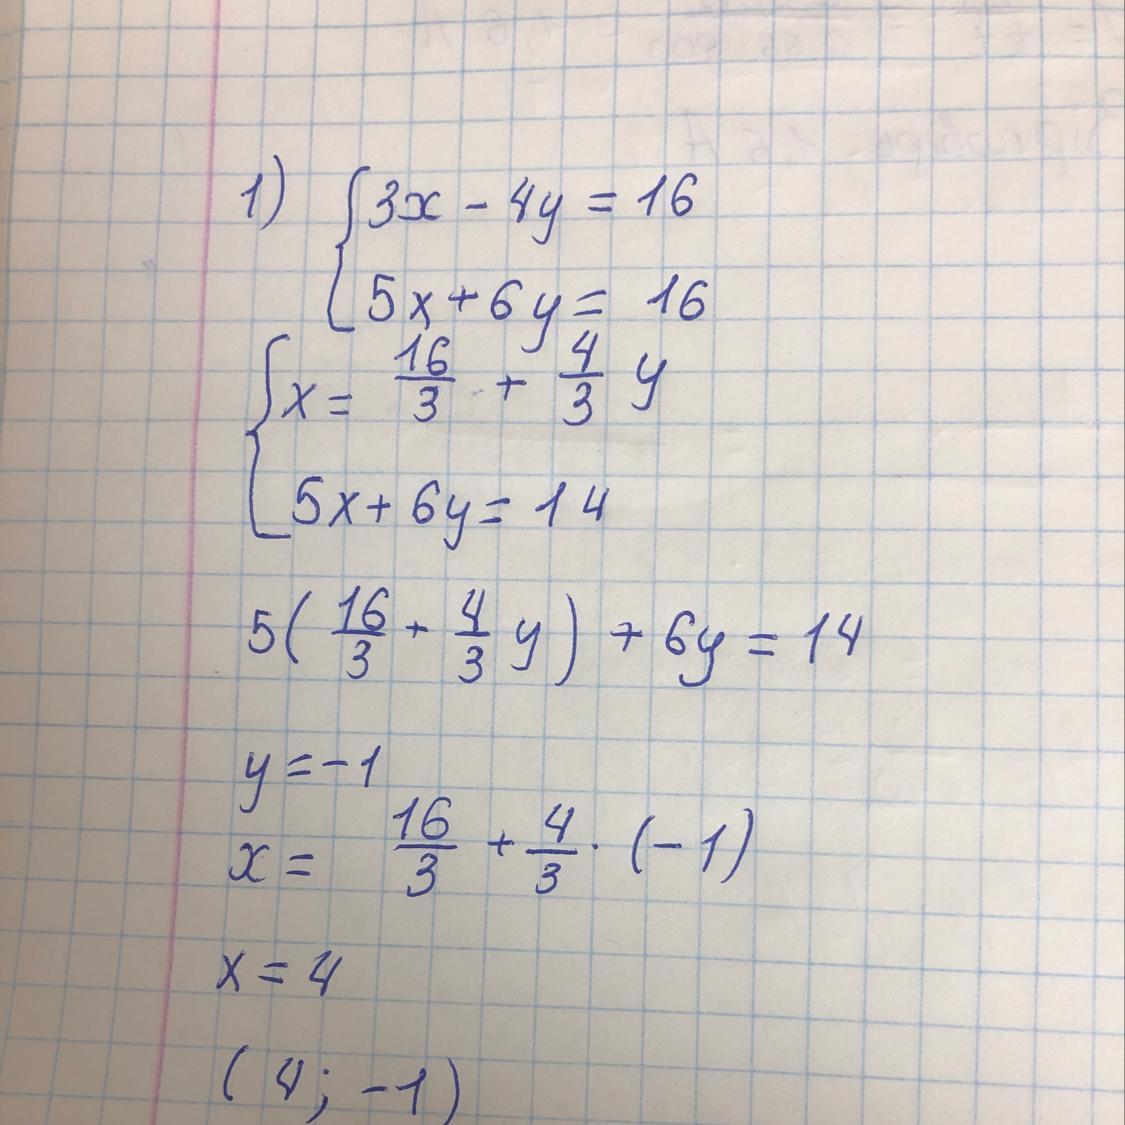 1) { 3x - 4y = 16
5x + 6y = 16
{ x = 16/3 + 4/3 y
5x + 6y = 14
5( 16/3 + 4/3 y ) + 6y = 14
y = -1
x = 16/3 + 4/3 · (-1)
x = 4
( 4 ; -1 )